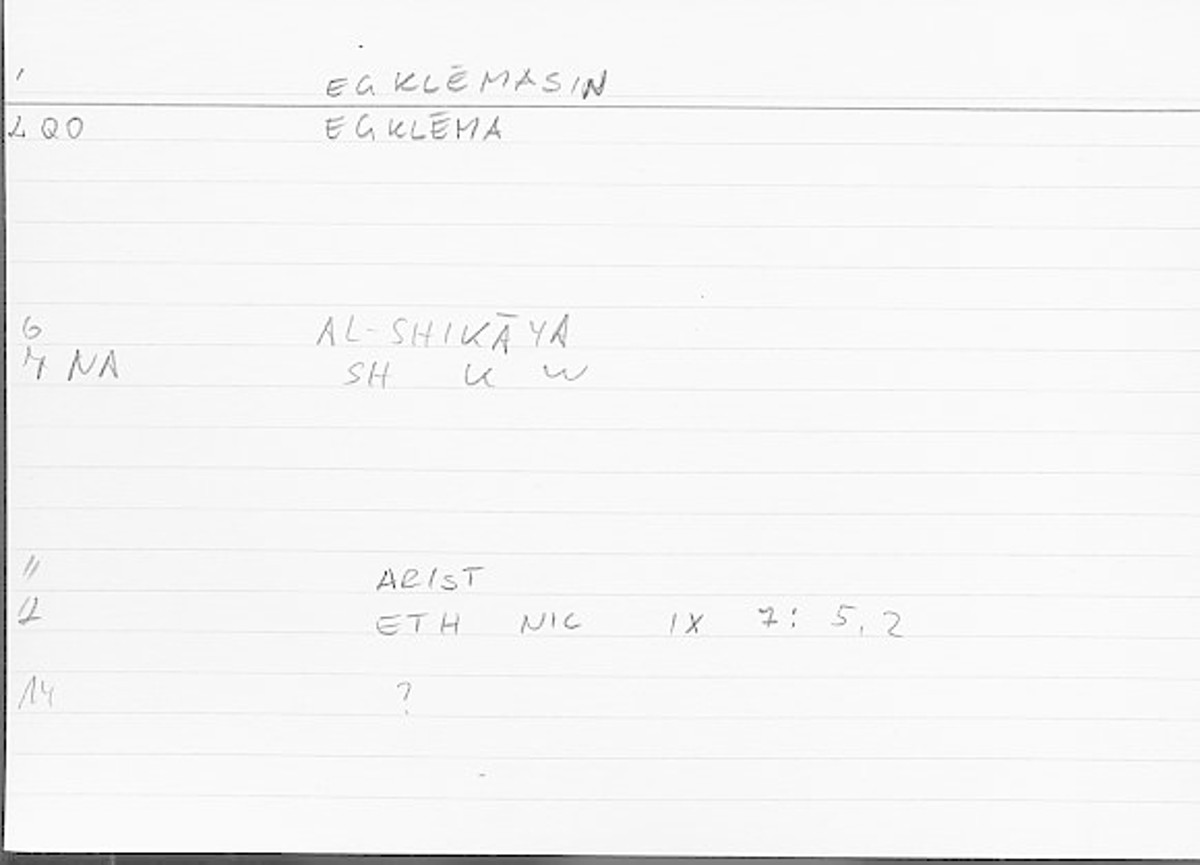 1 EGKLĒMASIN
2 QO EGKLĒMA
6 AL-SHIKĀYA
7 NA SH K W
11 ARIST
12 ETH NIC IX 7: 5,2
14 ?